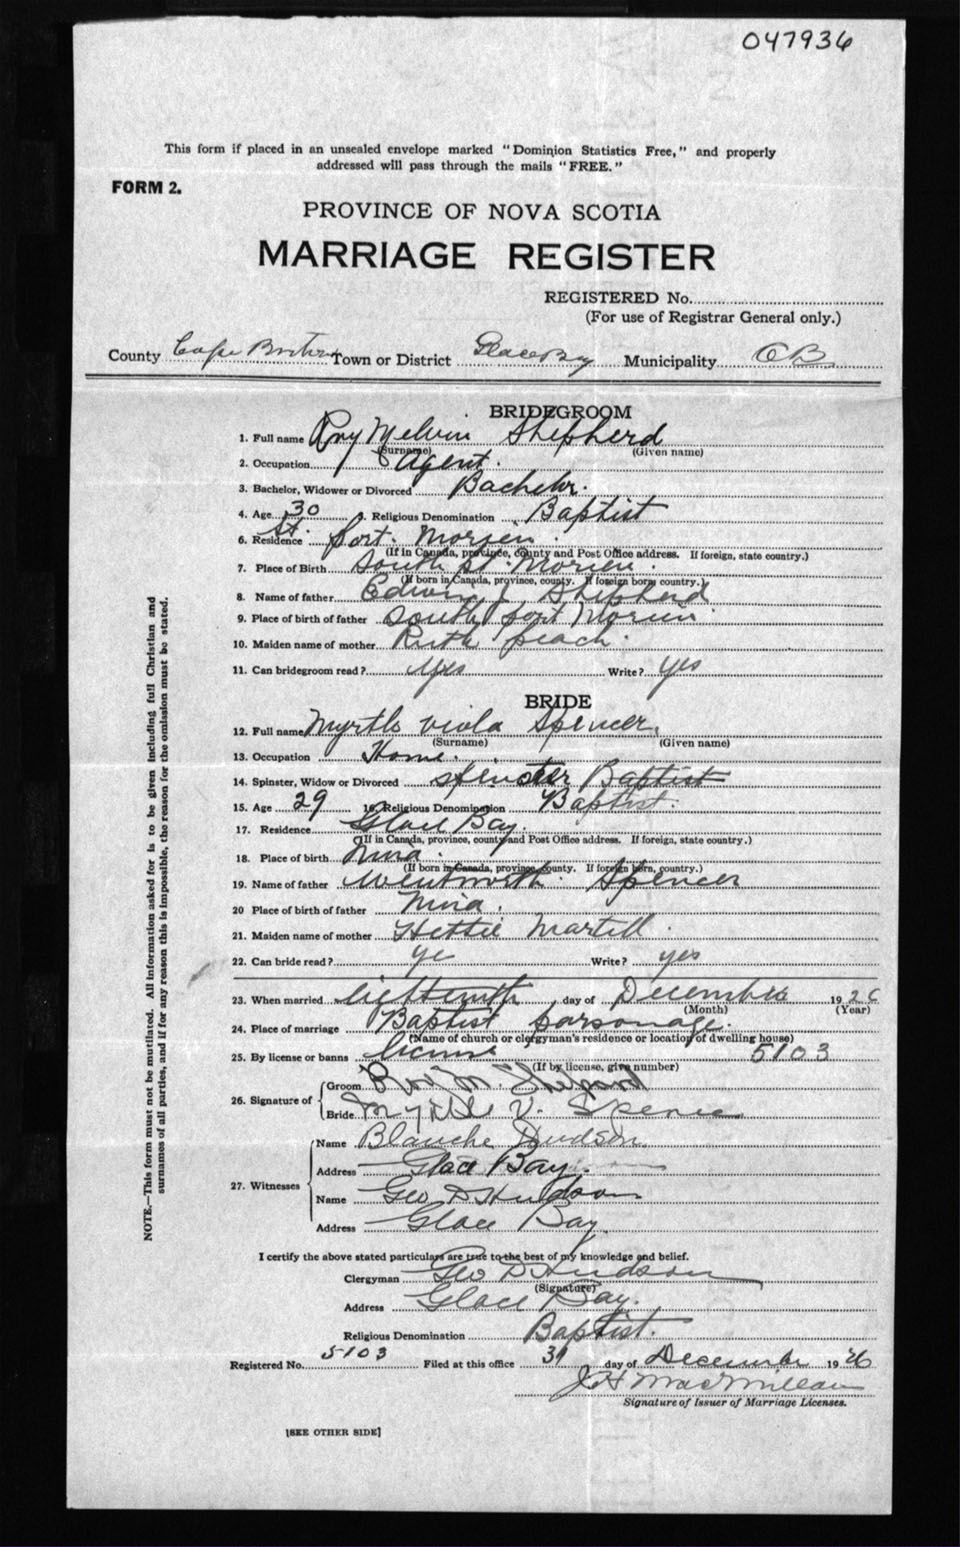 047936
This form if placed in an unsealed envelope marked "Dominion Statistics Free," and properly
addressed will pass through the mails "FREE."
FORM 2.
PROVINCE OF NOVA SCOTIA
MARRIAGE REGISTER
REGISTERED No.
(For use of Registrar General only.)
County Cape Breton Town or District Glace Bay Municipality C B
BRIDEGROOM
1. Full name Roy Melvin Shepherd
(Surname) (Given name)
2. Occupation Agent.
3. Bachelor, Widower or Divorced Bachelor.
4. Age 30 5. Religious Denomination Baptist
6. Residence port. Morien.
(If in Canada, province, county and Post Office address. If foreign, state country.)
7. Place of Birth South pt. Morien.
(If born in Canada, province, county. If foreign born, country.)
8. Name of father Edwin J Shepherd
9. Place of birth of father South port Morien
10. Maiden name of mother Ruth peach.
11. Can bridegroom read? yes Write? yes
BRIDE
12. Full name Myrtle viola Spencer.
(Surname) (Given name)
13. Occupation Home.
14. Spinster, Widow or Divorced spinster Baptist
15. Age 29 16. Religious Denomination Baptist.
17. Residence Glace Bay.
(If in Canada, province, county and Post Office address. If foreign, state country.)
18. Place of birth Mira.
(If born in Canada, province, county. If foreign born, country.)
19. Name of father Wentworth Spencer
20 Place of birth of father Mira.
21. Maiden name of mother Hettie Martell.
22. Can bride read? ye Write? yes
23. When married eighteenth day of December 1926
(Month) (Year)
24. Place of marriage Baptist parsonage.
(Name of church or clergyman's residence or location of dwelling house)
25. By license or banns license 5103
(If by license, give number)
26. Signature of
Groom Roy M. Shepard
Bride Myrtle V. Spencer
27. Witnesses
Name Blanche Hudson
Address Glace Bay.
Name Geo D Hudson
Address Glace Bay
I certify the above stated particulars are true to the best of my knowledge and belief.
Clergyman Geo D Hudson
(Signature)
Address Glace Bay.
Religious Denomination Baptist.
Registered No. 5103 Filed at this office 31 day of December 1926
J H MacMillan
Signature of Issuer of Marriage Licenses.
[SEE OTHER SIDE]
NOTE.—This form must not be mutilated. All information asked for is to be given including full Christian and
surnames of all parties, and if for any reason this is impossible, the reason for the omission must be stated.